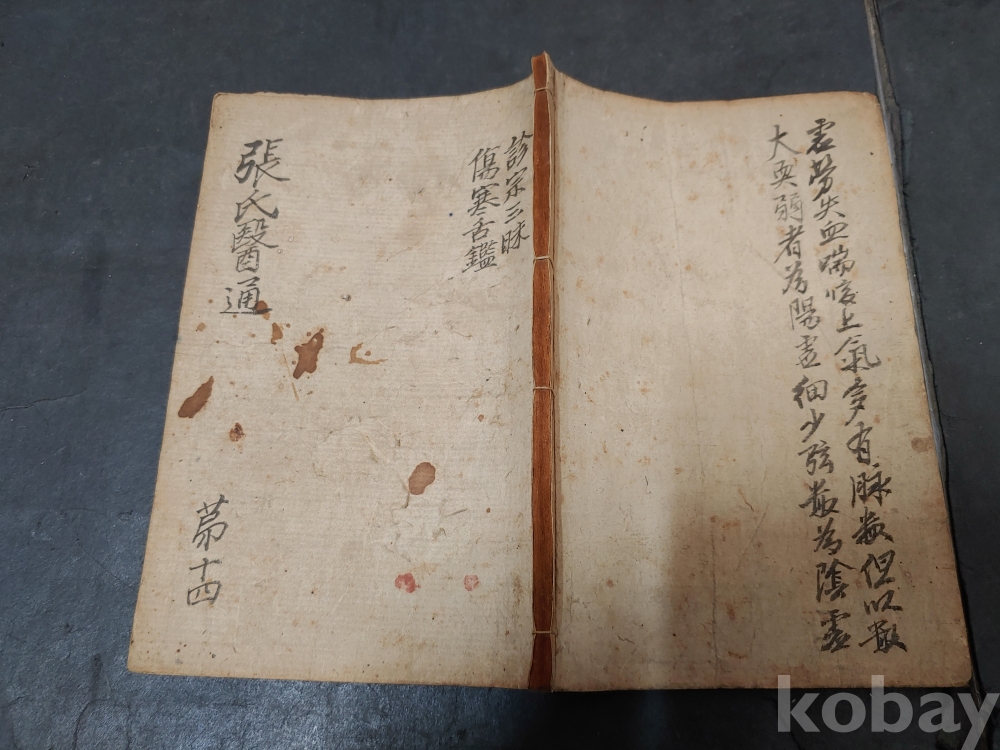 虛勞失血喘咳上氣多有脉數但以數
大耎弱者為陽虛細少弦數為陰虛
診宗三昧
傷寒舌鑑
張氏醫通
苐十四
kobay